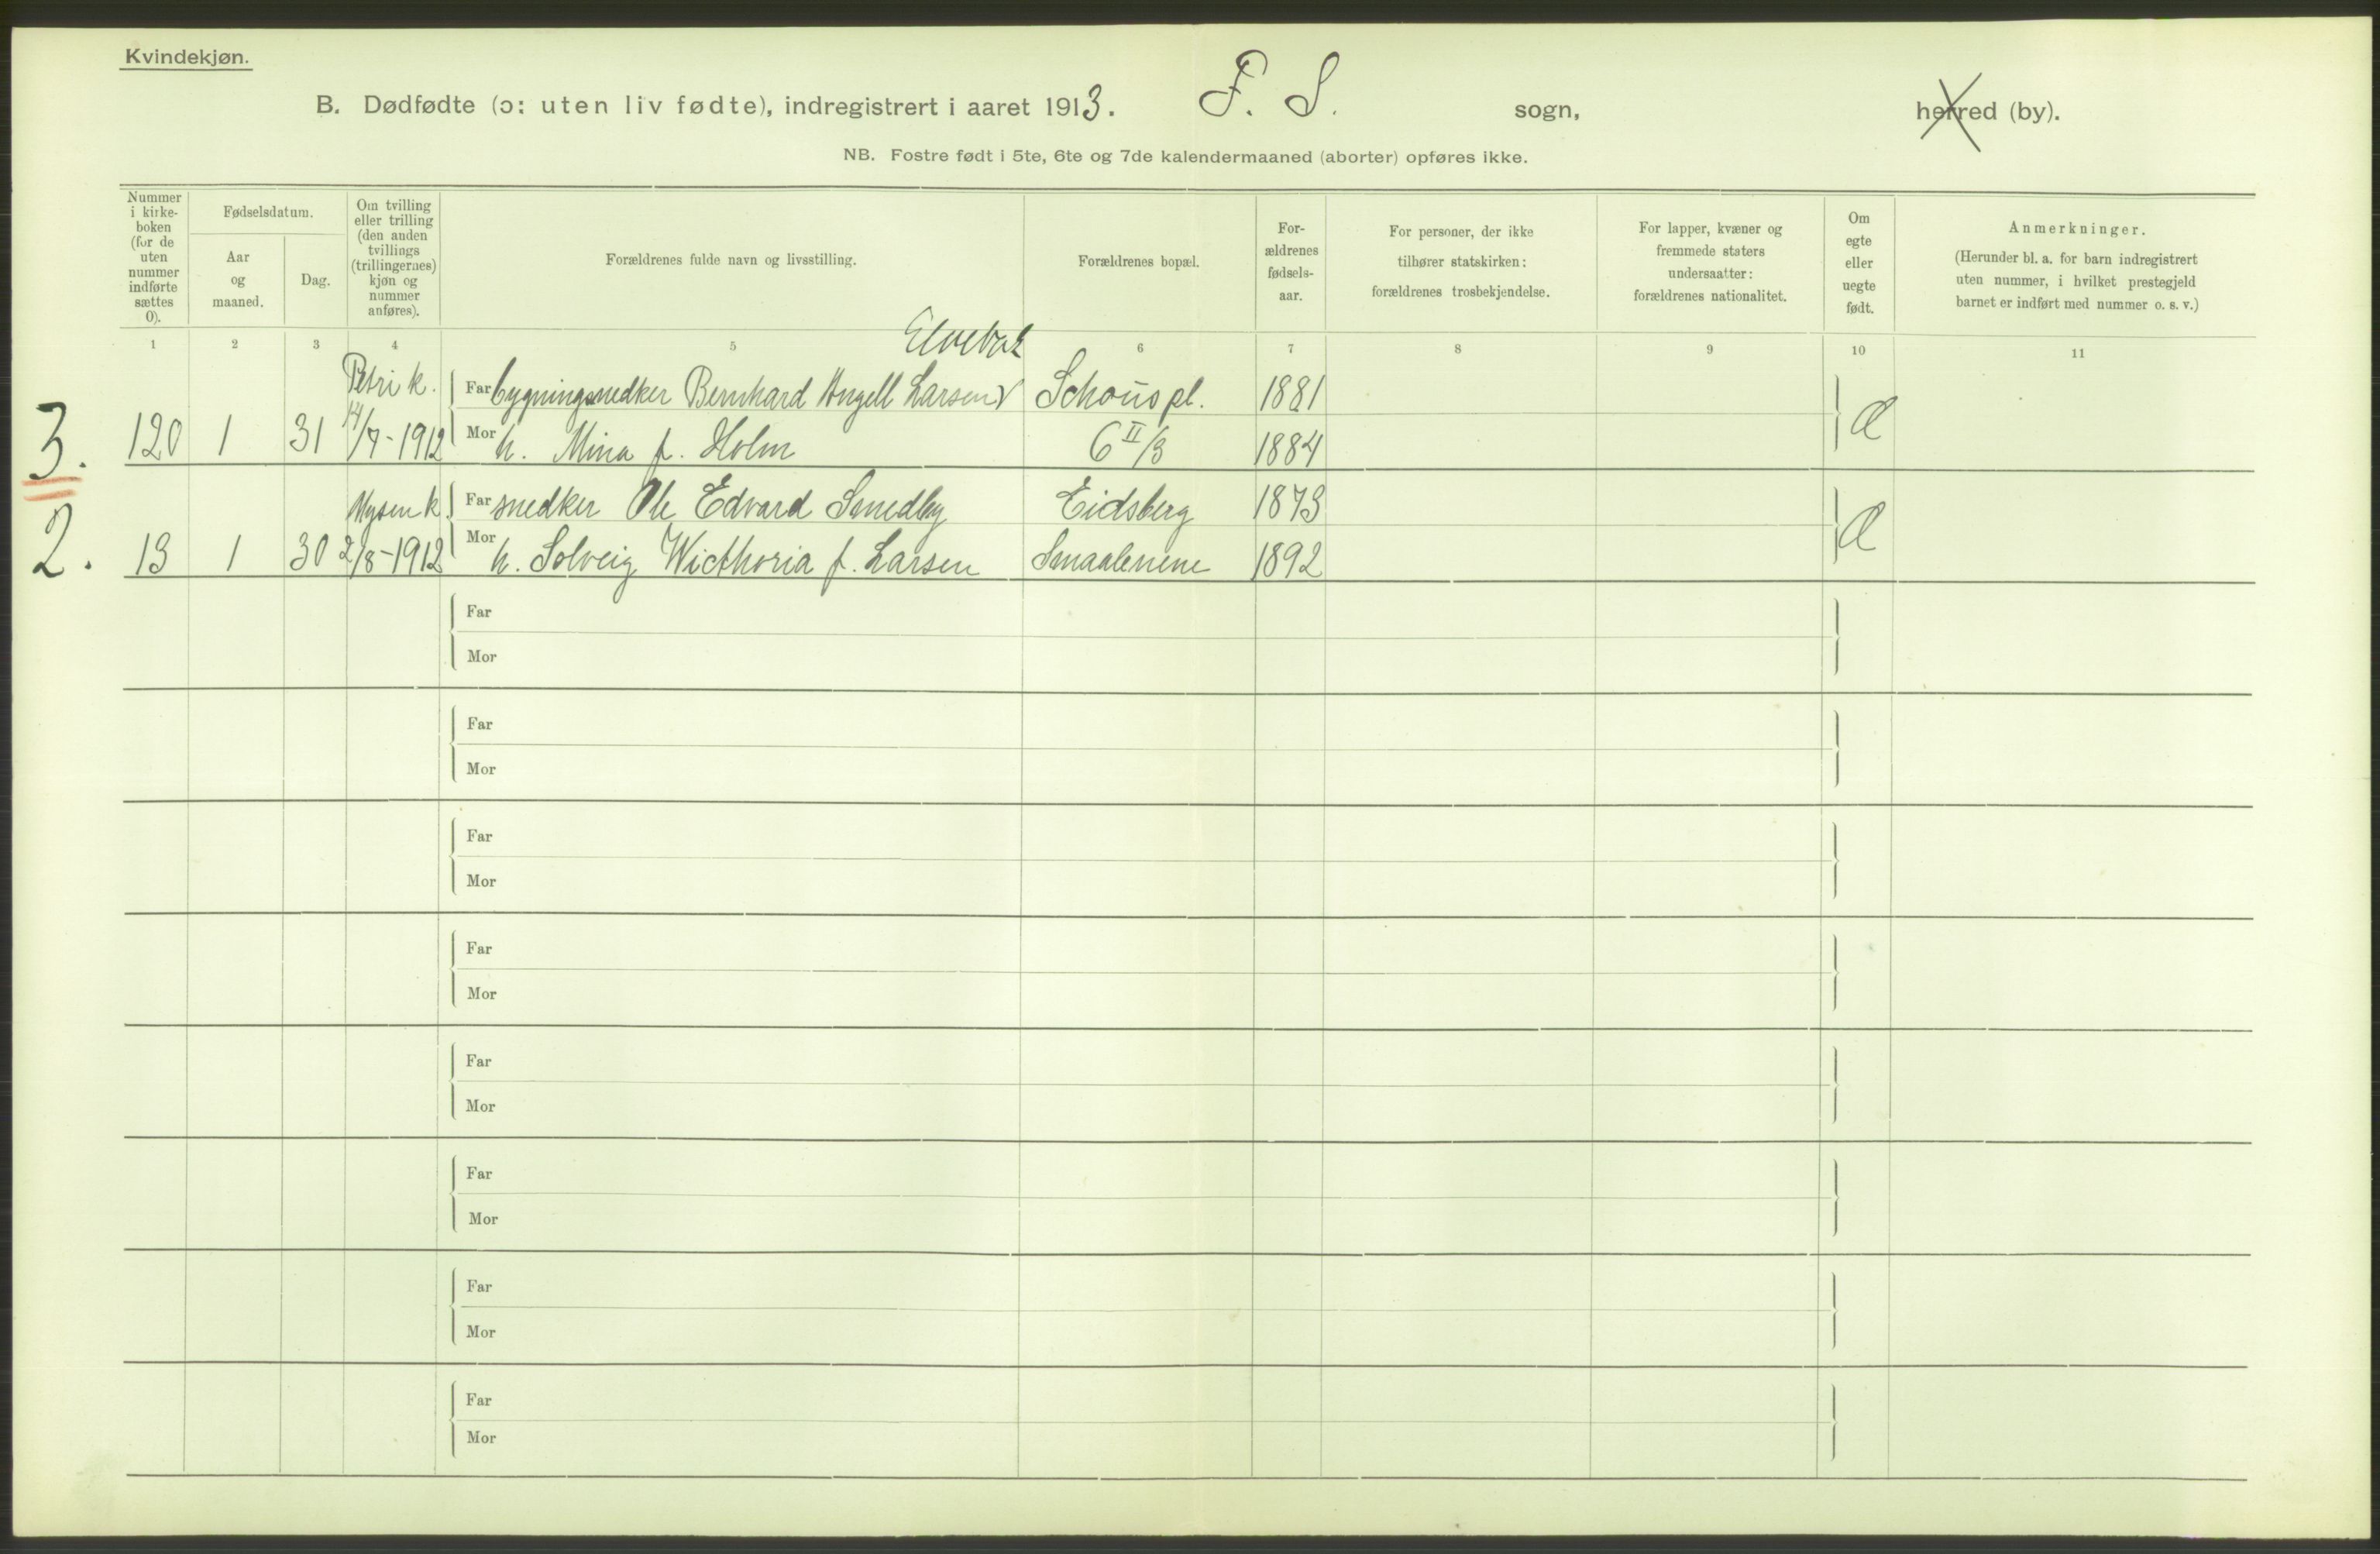 Kvindekjøn.
B. Dødfødte (ɔ: uten liv fødte), indregistrert i aaret 1913. F. S. sogn, herred (by).
NB. Fostre født i 5te, 6te og 7de kalendermaaned (aborter) opføres ikke.
Nummer i kirke- boken (for de uten nummer indførte sættes 0).
Fødselsdatum.
Aar og maaned.
Dag.
Om tvilling eller trilling (den anden tvillings (trillingernes) kjøn og nummer anføres).
Forældrenes fulde navn og livsstilling.
Forældrenes bopæl.
For- ældrenes fødsels- aar.
For personer, der ikke tilhører statskirken: forældrenes trosbekjendelse.
For lapper, kvæner og fremmede staters undersaatter: forældrenes nationalitet.
Om egte eller uegte født.
Anmerkninger.
(Herunder bl. a. for barn indregistrert uten nummer, i hvilket prestegjeld barnet er indført med nummer o. s. v.)
1 2 3 4 5 6 7 8 9 10 11
Elvebak
Petri k. Far bygningsnedker Bernhard Angell Larsen Schous pl. 1881
3. 120 1 31 14/7-1912 Mor h. Mina f. Holm 6 II/3 1884 Æ
Mysen k. Far snedker Ole Edvard Smedby Eidsberg 1873
2. 13 1 30 2/8-1912 Mor h. Solveig Wicthoria f. Larsen Smaalenene 1892 Æ
Far
Mor
Far
Mor
Far
Mor
Far
Mor
Far
Mor
Far
Mor
Far
Mor
Far
Mor